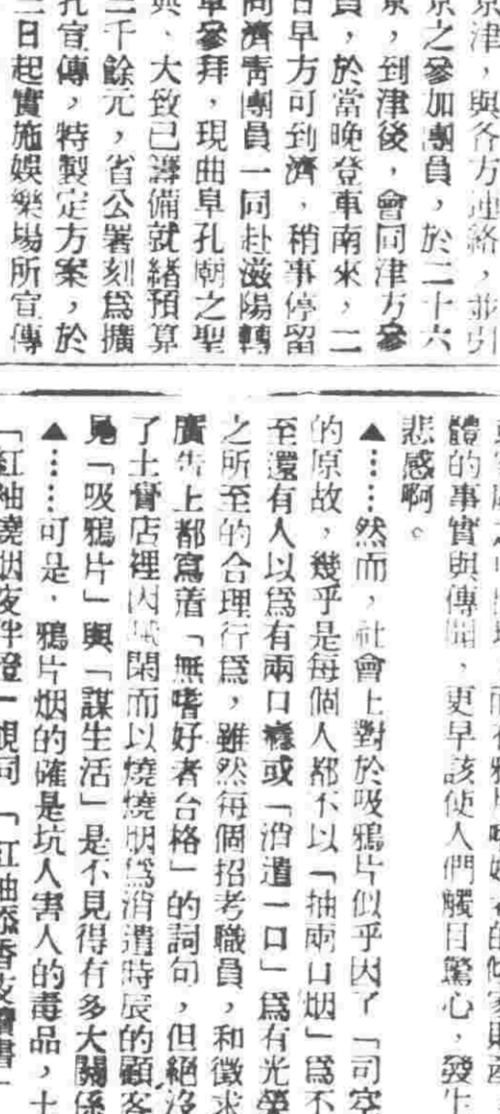 京津，與各方連絡，並引
京之參加團員，於二十六
京，到津後，會同津方參
員，於當晚登車南來，二
日早方可到濟，稍事停留
同濟青團員一同赴滋陽轉
阜參拜，現曲阜孔廟之聖
典、大致已籌備就緒預算
二千餘元，省公署刻爲擴
孔宣傳，特製定方案，於
二日起實施娛樂場所宣傳
體的事實與傳聞，更早該使人們觸目驚心，發生
悲感啊。
▲……然而，社會上對於吸鴉片似乎因了「司空
的原故，幾乎是每個人都不以「抽兩口烟」爲不
至還有人以爲有兩口癮或「消遣一口」爲有光榮
之所至的合理行爲，雖然每個招考職員，和徵求
廣告上都寫着「無嗜好者合格」的詞句，但絕沒
了土膏店裡因閑而以燒燒烟爲消遣時辰的顧客
見「吸鴉片」與「謀生活」是不見得有多大關係
▲……可是，鴉片烟的確是坑人害人的毒品，土
「紅袖燒烟夜伴燈」視同「紅袖添香夜讀書」